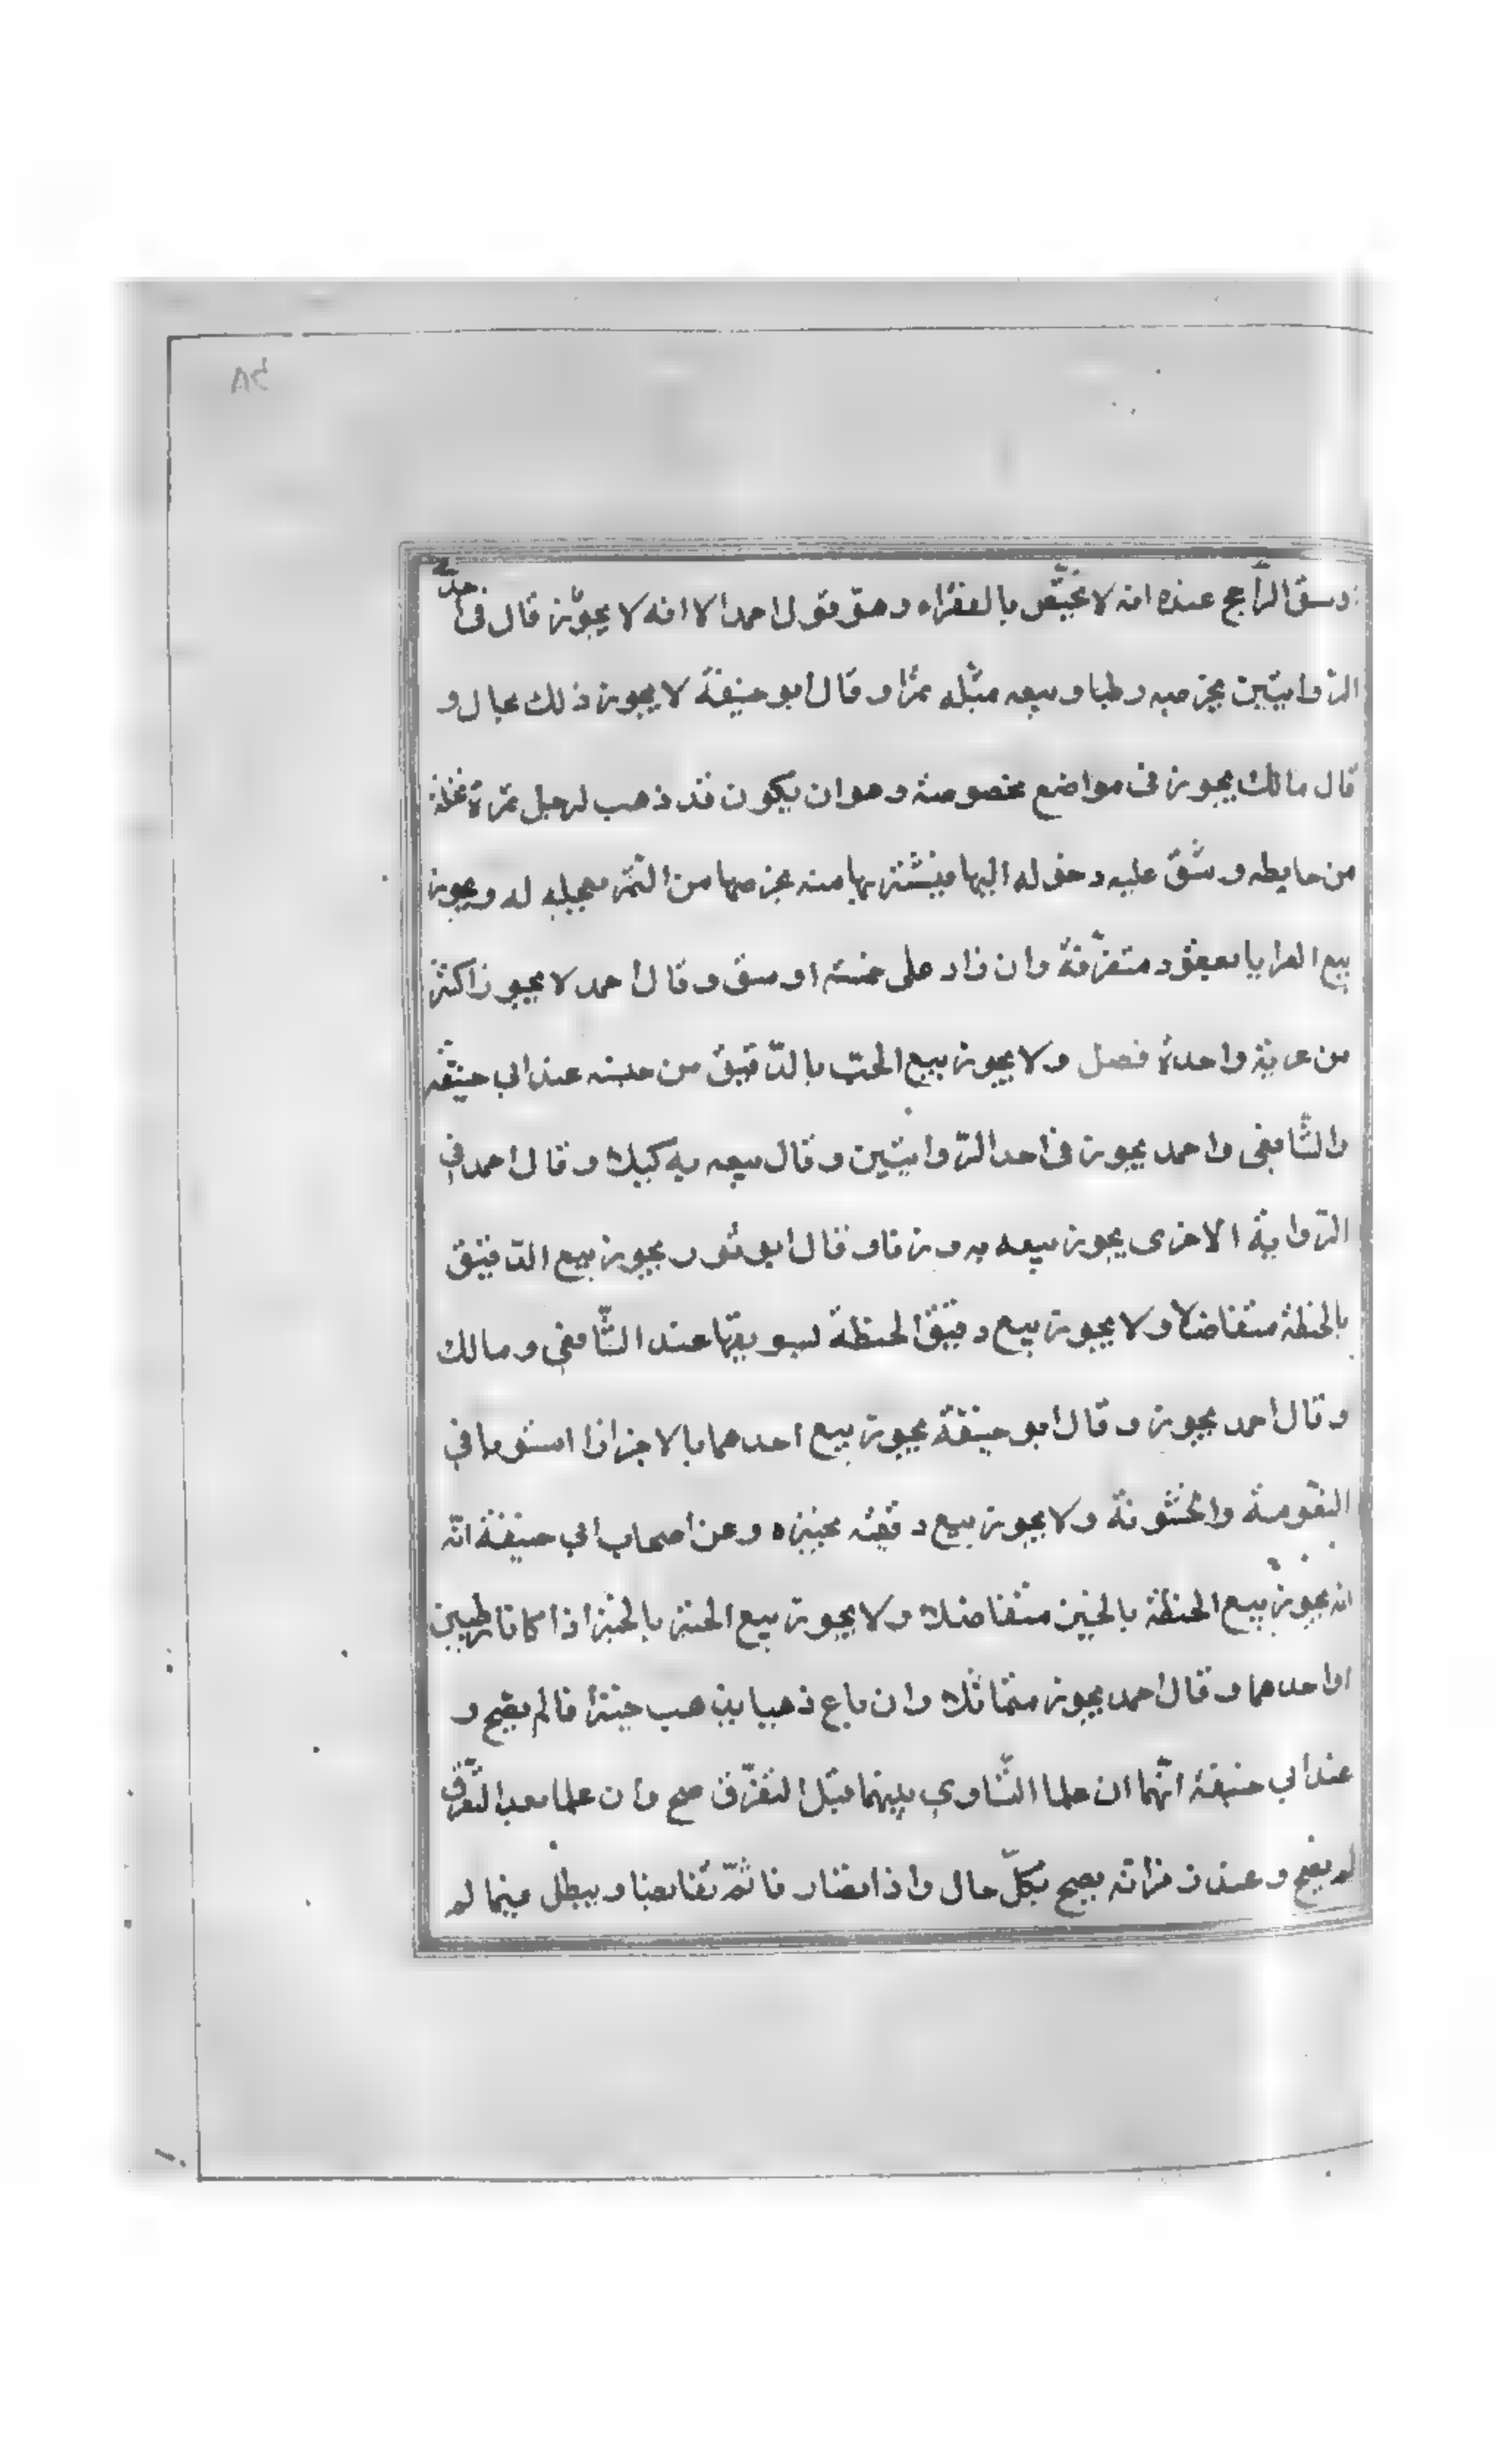 اوسق الراجح عنده انه لا يختص بالفقراء وهو قول احمد الا انه لا يجوز قال فى احد
الروايتين بخرصه رطبا وبيعه مثله تمرا وقال ابو حنيفة لا يجوز ذلك بحال و
قال مالك يجوز فى مواضع مخصوصة وهو ان يكون قد وهب لرجل ثمرة نخلة
من حايطه وشق عليه دخوله اليها فيشتريها منه بخرصها من التمر معجله له ويجوز
بيع العرايا بعقود متفرقة وان زاد على خمسة اوسق وقال احمد لا يجوز اكثر
من عرية واحدة فصل ولا يجوز بيع الحب بالدقيق من جنسه عند ابي حنيفة
والشافعى واحمد يجوز فى احد الروايتين وقال بيعه به كيلا وقال احمد في
الرواية الاخرى يجوز بيعه به وزنا وقال ابو ثور يجوز بيع الدقيق
بالحنطة متفاضلا ولا يجوز بيع دقيق الحنطة بسويقها عند الشافعي ومالك
وقال احمد يجوز وقال ابو حنيفة يجوز بيع احدهما بالاخر اذا استويا في
النعومة والخشونة ولا يجوز بيع دقيقه بخبزه وعن اصحاب ابي حنيفة انّه
انه يجوز بيع الحنطة بالخبز متفاضلا ولا يجوز بيع الخبز بالخبز اذا كانا رطبين
او احدهما وقال احمد يجوز متماثلا وان باع ذهبا بذهب جزافا لم يصح و
عند ابي حنيفة انّهما ان علما التساوي بينهما قبل التفرّق صح وان علما بعد التفرق
لم يصح وعند زفر انّه يصح بكلّ حال واذا تصارفا ثمّ تقابضا ويبطل فيما لم
٨٢